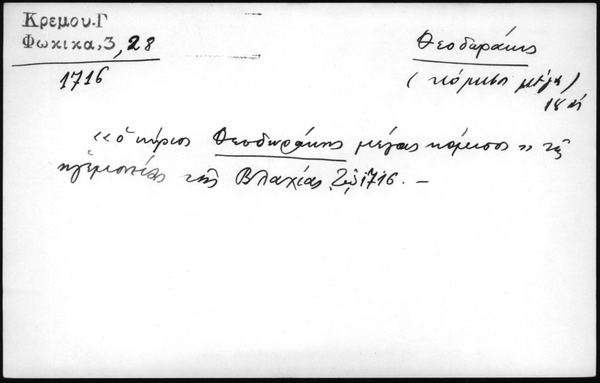 Κρεμου.Γ
Φωκικα,3, 28
1716
Θεοδωράκης
(κόμισος μέγας)
18 αἰ
«ὁ κύριος Θεοδωράκης μέγας κόμισος» τῆς
ἡγεμονίας τῆς Βλαχίας 1716. –